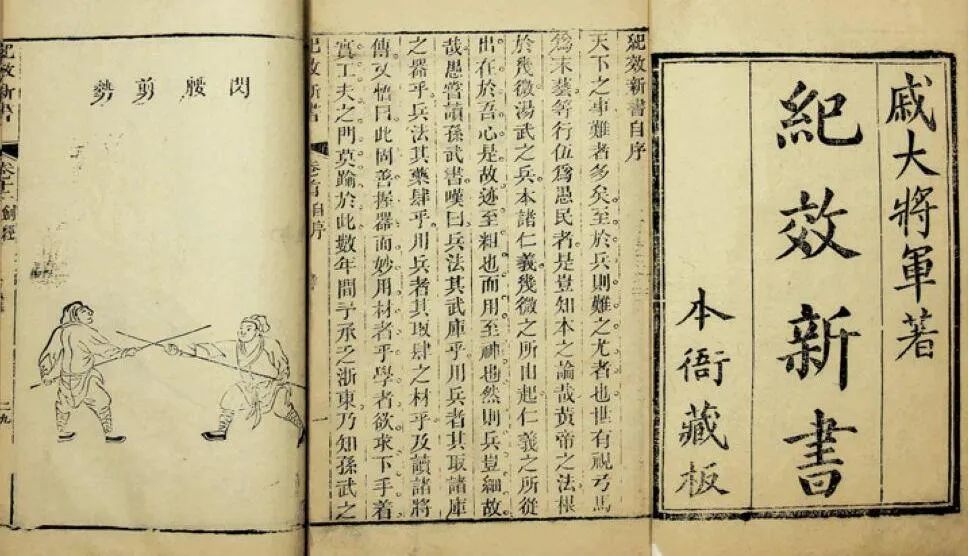 戚大將軍著
紀效新書
本衙藏板
紀效新書自序
天下之事難者多矣至於兵則難之尤者也世有視弓馬
為末藝等行伍為愚民者是豈知本之論哉黃帝之法根
於幾微湯武之兵本諸仁義幾微之所由起仁義之所從
出在於吾心是故迹至粗也而用至神也然則兵豈細故
哉愚嘗讀孫武書嘆曰兵法其武庫乎用兵者其取諸庫
之器乎兵法其藥肆乎用兵者其取肆之材乎及讀諸將
傳又悟曰此固善握器而妙用材者乎學者欲求下手着
實工夫之門莫踰於此數年間予承乏浙東乃知孫武之
紀效新書 卷首自序 一
閃腰剪勢
紀效新書 卷十二 劍經 二九